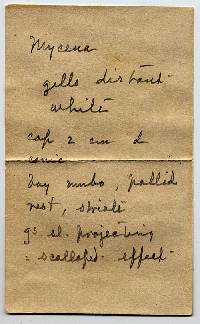 Mycena
gills distant
white
cap 2 cm d
conic
bay umbo, pallid
rest, striate
gs sl. projecting
= scalloped effect